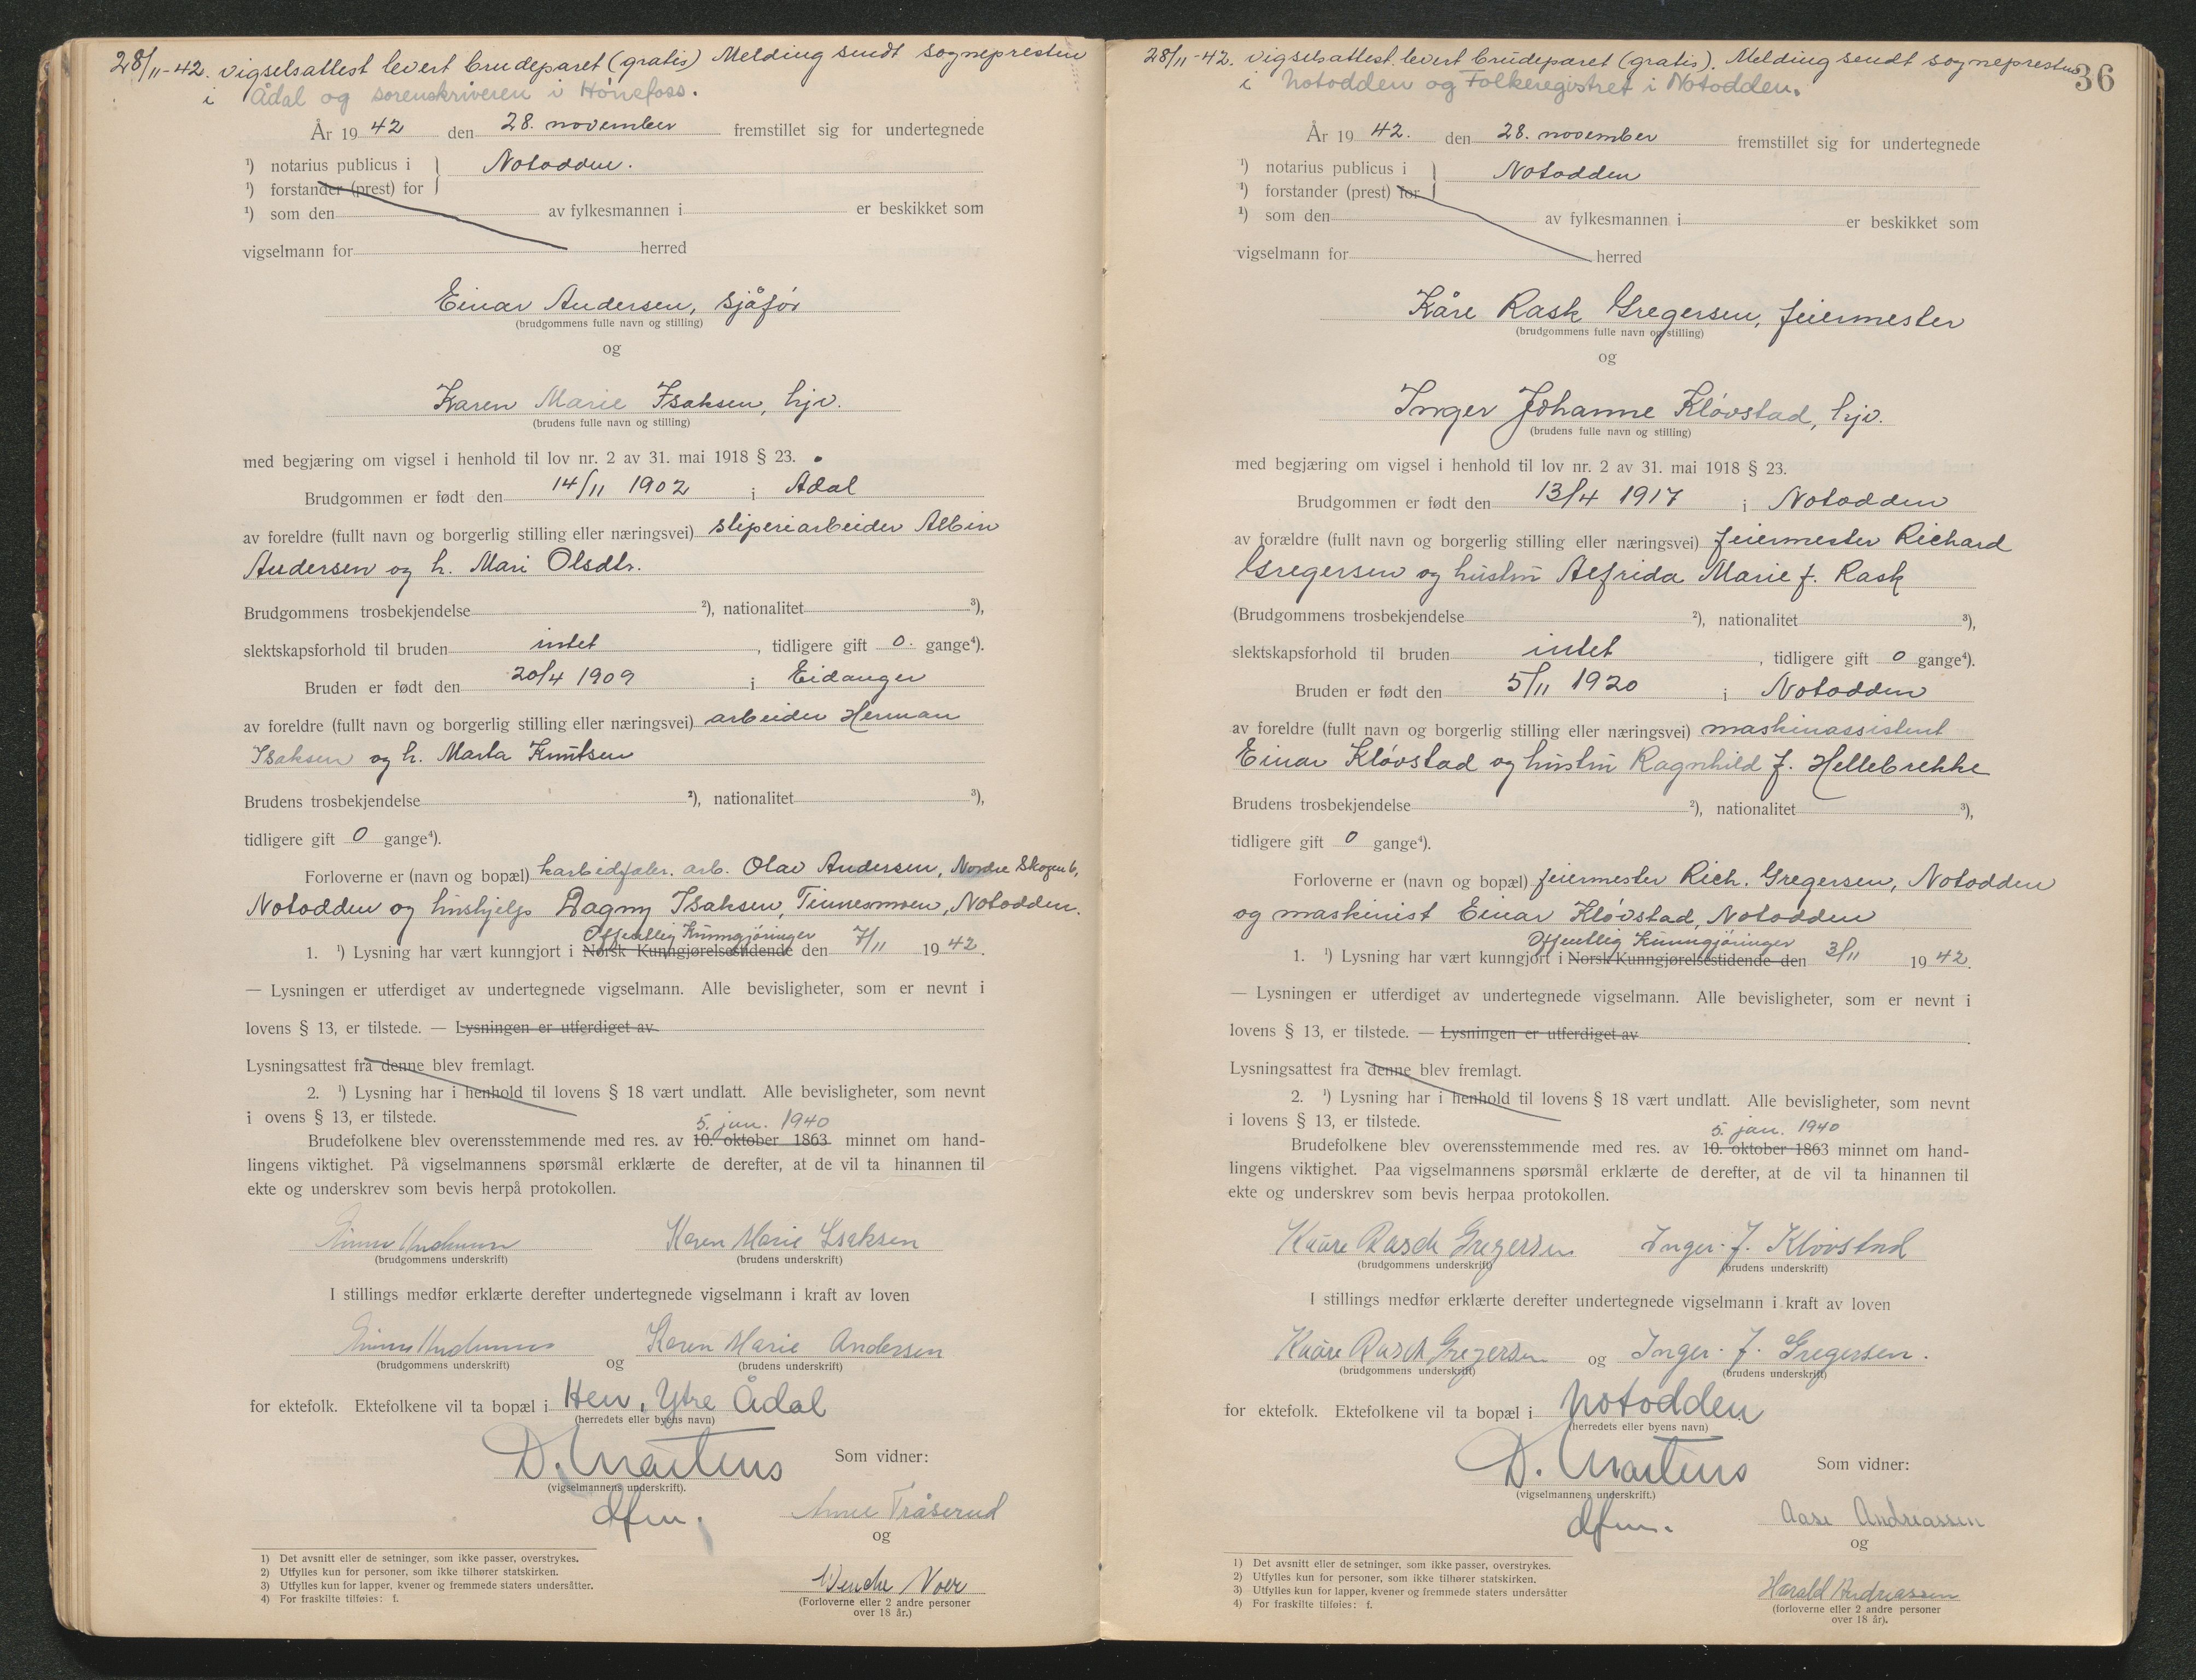 28/11-42. vigselsattest levert brudeparet (gratis) Melding sendt sognepresten
i Ådal og sorenskriveren i Hønefoss.
År 19 42 den 28. november fremstillet sig for undertegnede
¹) notarius publicus i } Notodden.
¹) forstander (prest) for
¹) som den av fylkesmannen i er beskikket som
vigselmann for herred
Einar Andersen, sjåfør
(brudgommens fulle navn og stilling)
og
Karen Marie Isaksen, hjv.
(brudens fulle navn og stilling)
med begjæring om vigsel i henhold til lov nr. 2 av 31. mai 1918 § 23.
Brudgommen er født den 14/11 1902 i Ådal
av foreldre (fullt navn og borgerlig stilling eller næringsvei) sliperiarbeider Albin
Andersen og h. Mari Olsdtr.
Brudgommens trosbekjendelse ²), nationalitet ³),
slektskapsforhold til bruden intet, tidligere gift 0. gange⁴).
Bruden er født den 20/4 1909 i Eidanger
av foreldre (fullt navn og borgerlig stilling eller næringsvei) arbeider Herman
Isaksen og h. Marta Knutsen
Brudens trosbekjendelse ²), nationalitet ³),
tidligere gift 0 gange⁴).
Forloverne er (navn og bopæl) karbidfabr. arb. Olav Andersen, Nordre Skogen 6,
Notodden og hushjelp Dagny Isaksen, Tinnesmoen, Notodden.
Offentlig Kunngjøringer
1. ¹) Lysning har vært kunngjort i Norsk Kunngjørelsestidende den 7/11 1942.
— Lysningen er utferdiget av undertegnede vigselmann. Alle bevisligheter, som er nevnt i
lovens § 13, er tilstede. — Lysningen er utferdiget av
Lysningsattest fra denne blev fremlagt.
2. ¹) Lysning har i henhold til lovens § 18 vært undlatt. Alle bevisligheter, som nevnt
i ovens § 13, er tilstede.
5. jan. 1940
Brudefolkene blev overensstemmende med res. av 10. oktober 1863 minnet om hand-
lingens viktighet. På vigselmannens spørsmål erklærte de derefter, at de vil ta hinannen til
ekte og underskrev som bevis herpå protokollen.
Einar Andersen Karen Marie Isaksen
(brudgommens underskrift) (brudens underskrift)
I stillings medfør erklærte derefter undertegnede vigselmann i kraft av loven
Einar Andersen og Karen Marie Andersen
(brudgommens underskrift) (brudens underskrift)
for ektefolk. Ektefolkene vil ta bopæl i Hen, Ytre Ådal
(herredets eller byens navn)
D. Martens Som vidner:
(vigselmannens underskrift).
dfm. Anne Tråserud
og
Wenche Voer
(Forloverne eller 2 andre personer
over 18 år.)
1) Det avsnitt eller de setninger, som ikke passer, overstrykes.
2) Utfylles kun for personer, som ikke tilhører statskirken.
3) Utfylles kun for lapper, kvener og fremmede staters undersåtter.
4) For fraskilte tilføies: f.
36
28/11-42. vigselsattest levert brudeparet (gratis). Melding sendt sognepresten
i Notodden og Folkeregistret i Notodden.
År 19 42. den 28. november fremstillet sig for undertegnede
¹) notarius publicus i } Notodden
¹) forstander (prest) for
¹) som den av fylkesmannen i er beskikket som
vigselmann for herred
Kåre Rask Gregersen, feiermester
(brudgommens fulle navn og stilling)
og
Inger Johanne Kløvstad, hjv.
(brudens fulle navn og stilling)
med begjæring om vigsel i henhold til lov nr. 2 av 31. mai 1918 § 23.
Brudgommen er født den 13/4 1917 i Notodden
av forældre (fullt navn og borgerlig stilling eller næringsvei) feiermester Richard
Gregersen og hustru Alfrida Marie f. Rask
(Brudgommens trosbekjendelse ²), nationalitet ³),
slektskapsforhold til bruden intet, tidligere gift 0 gange⁴).
Bruden er født den 5/11 1920 i Notodden
av foreldre (fullt navn og borgerlig stilling eller næringsvei) maskinassistent
Einar Kløvstad og hustru Ragnhild f. Hellebrekke
Brudens trosbekjendelse ²), nationalitet ³),
tidligere gift 0 gange⁴).
Forloverne er (navn og bopæl) feiermester Rich. Gregersen, Notodden
og maskinist Einar Kløvstad, Notodden
Offentlig Kunngjøringer
1. ¹) Lysning har vært kunngjort i Norsk Kunngjørelsestidende den 3/11 1942.
— Lysningen er utferdiget av undertegnede vigselmann. Alle bevisligheter, som er nevnt i
lovens § 13, er tilstede. — Lysningen er utferdiget av
Lysningsattest fra denne blev fremlagt.
2. ¹) Lysning har i henhold til lovens § 18 vært undlatt. Alle bevisligheter, som nevnt
i lovens § 13, er tilstede.
5. jan. 1940
Brudefolkene blev overensstemmende med res. av 10. oktober 1863 minnet om hand-
lingens viktighet. Paa vigselmannens spørsmål erklærte de derefter, at de vil ta hinannen til
ekte og underskrev som bevis herpaa protokollen.
Kaare Rasck Gregersen Inger. J. Kløvstad
(brudgommens underskrift) (brudens underskrift)
I stillings medfør erklærte derefter undertegnede vigselmann i kraft av loven
Kaare Rasck Gregersen og Inger. J. Gregersen.
(brudgommens underskrift) (brudens underskrift)
for ektefolk. Ektefolkene vil ta bopæl i Notodden
(herredets eller byens navn)
D. Martens Som vidner:
(vigselmannens underskrift.)
dfm. Aase Andreassen
og
Harald Andreassen
(forloverne eller 2 andre personer
over 18 år).
1) Det avsnitt eller de setninger, som ikke passer, overstrykes.
2) Utfylles kun for personer, som ikke tilhører statskirken.
3) Utfylles kun for lapper, kvener og fremmede staters undersåtter
4) For fraskilte tilføies: f.